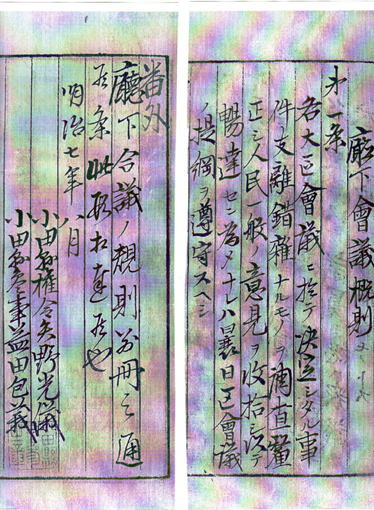 番外
廳下會議ノ規則別冊之通
相定候条此段相達候也
明治七年八月
小田縣権令矢野光儀
小田縣参事益田包義
廳下會議概則
才一条
各大区會議ニ於テ決定シタル事
件支離錯雜ナルモノヲ調査釐
正シ人民一般ノ意見ヲ收拾シ以テ
暢達セン為メナレハ曩日区會議
ノ提綱ヲ遵守スヘシ